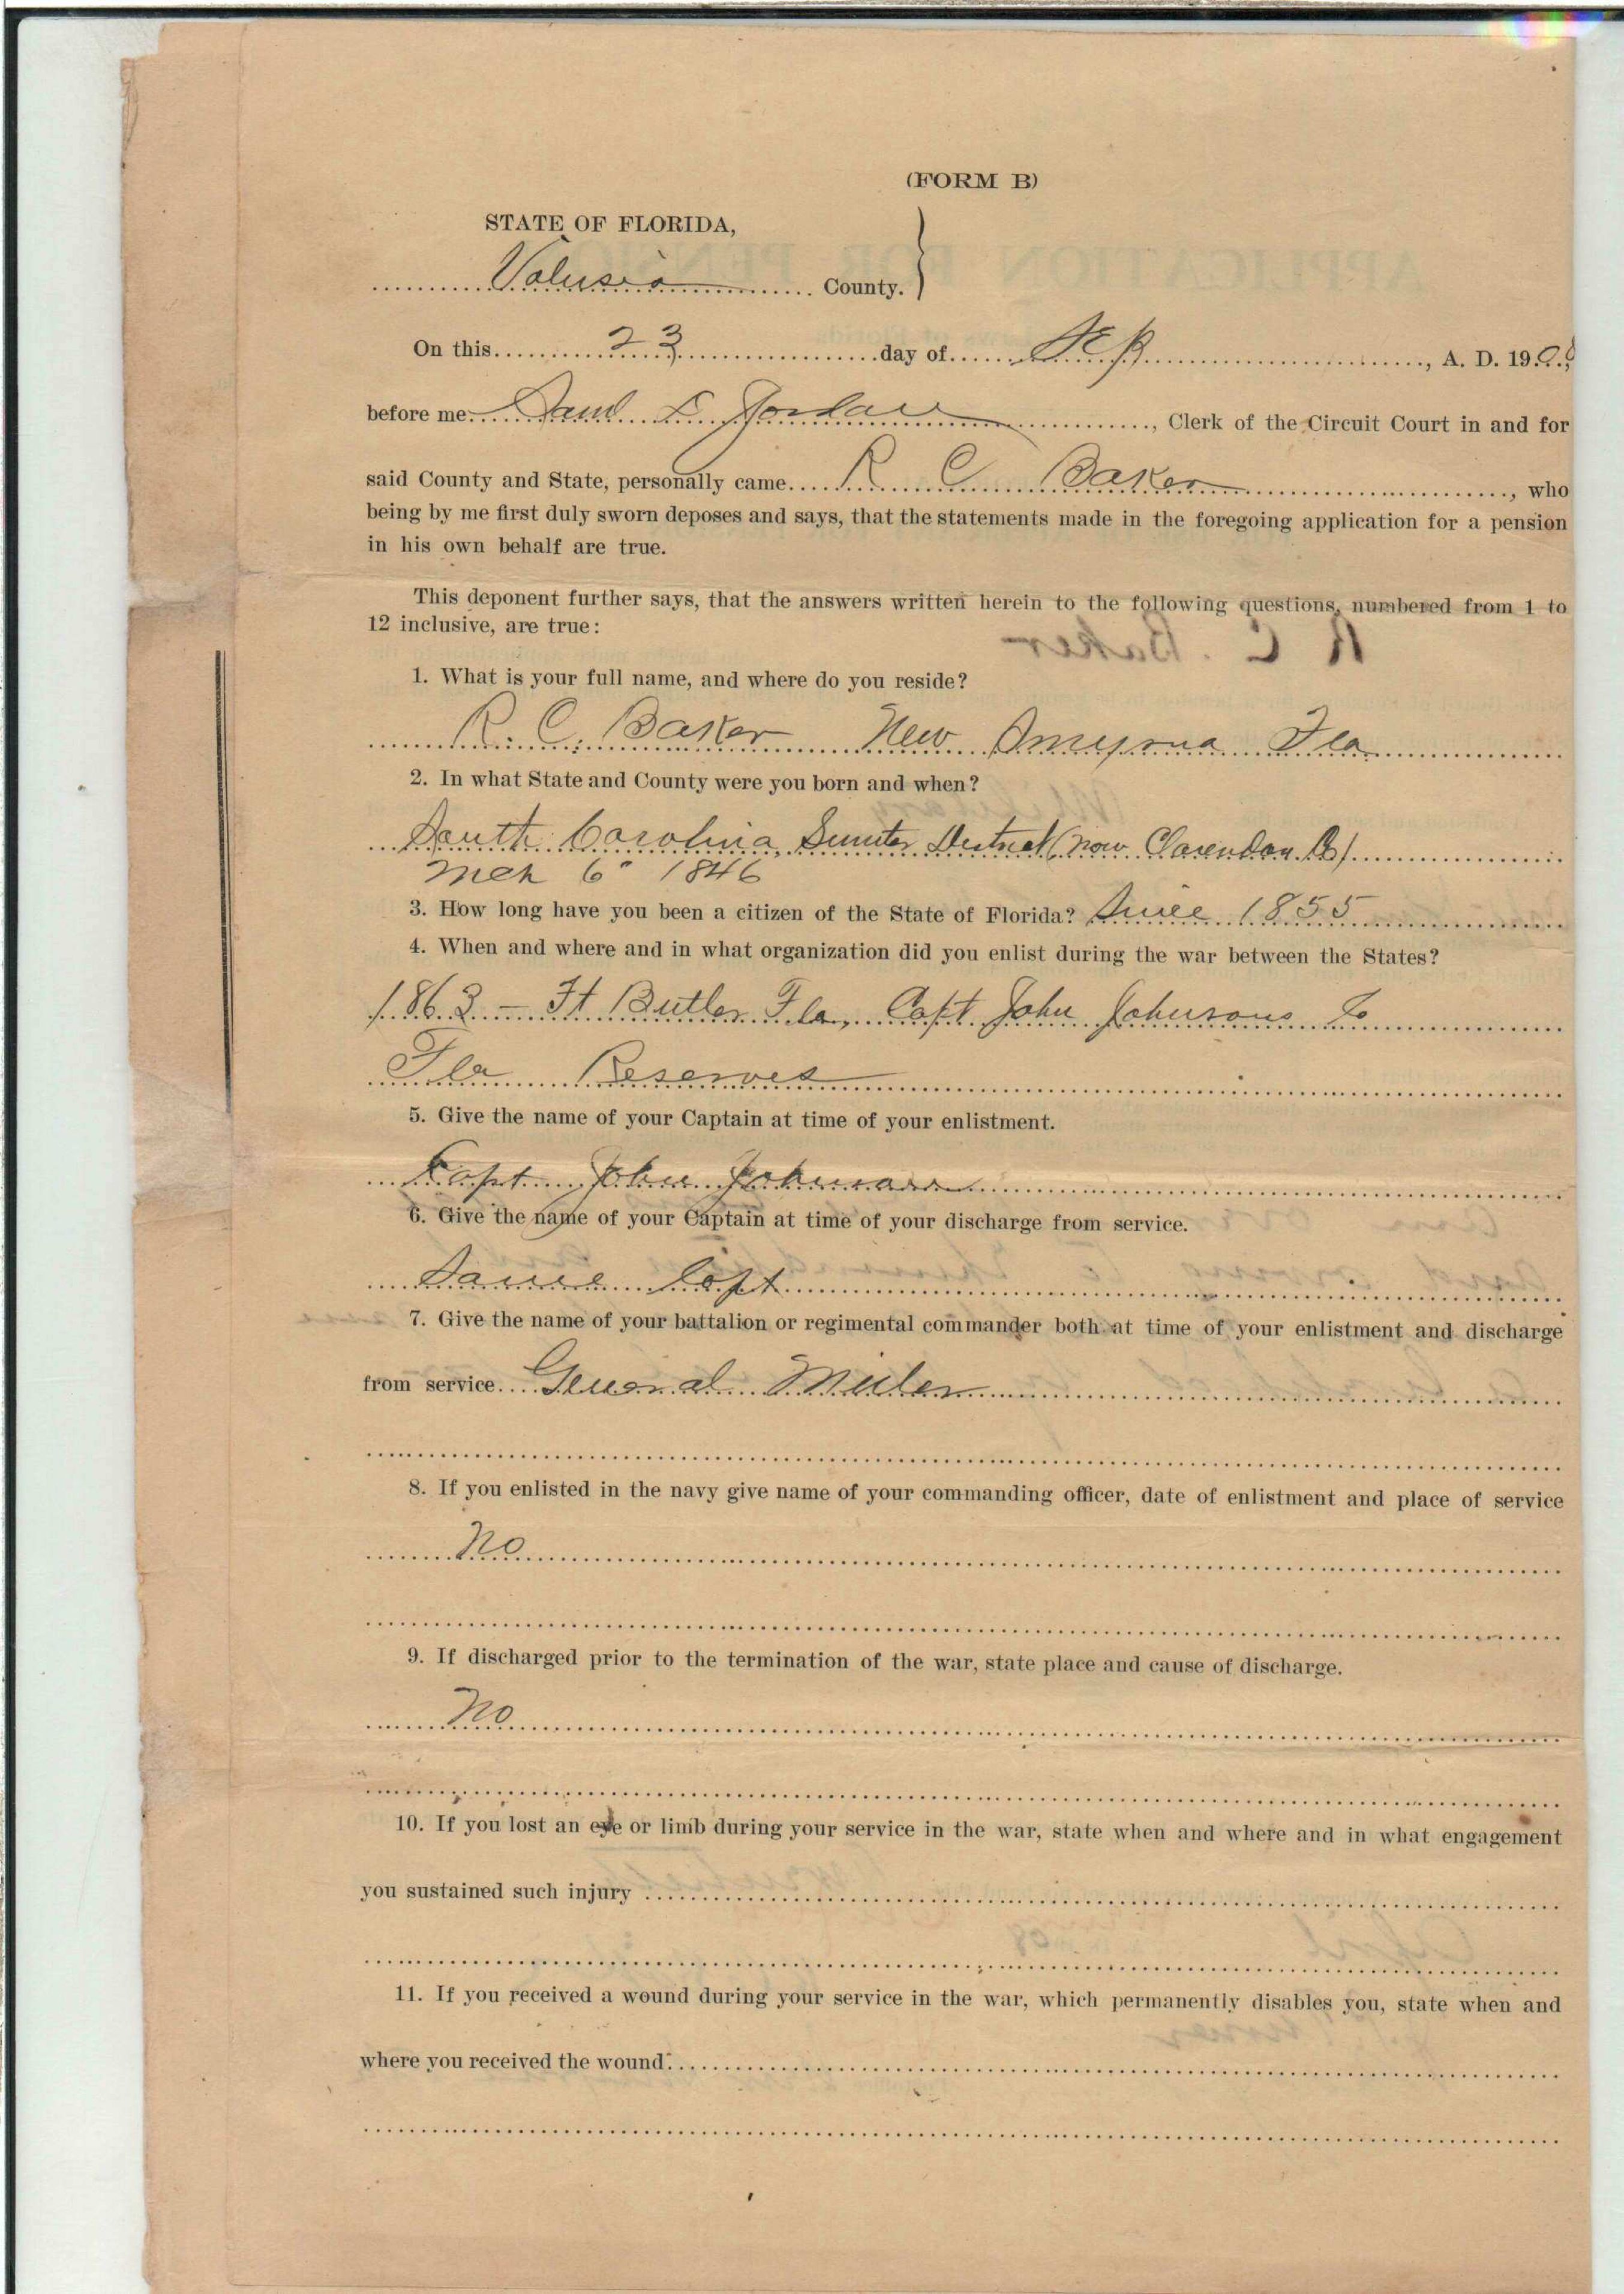 (FORM B)
STATE OF FLORIDA,
Volusia County.
On this 23 day of Sep, A. D. 190
before me Saml D. Jordan, Clerk of the Circuit Court in and for
said County and State, personally came R C Baker, who
being by me first duly sworn deposes and says, that the statements made in the foregoing application for a pension
in his own behalf are true.
This deponent further says, that the answers written herein to the following questions, numbered from 1 to
12 inclusive, are true:
1. What is your full name, and where do you reside?
R. C. Baker New Smyrna Fla
2. In what State and County were you born and when?
South Carolina, Sumter District (now Clarendon Co)
Mch 6" 1846
3. How long have you been a citizen of the State of Florida? Since 1855
4. When and where and in what organization did you enlist during the war between the States?
1863 - Ft Butler Fla, Capt John Johnsons Co
Fla Reserves
5. Give the name of your Captain at time of your enlistment.
Capt John Johnson
6. Give the name of your Captain at time of your discharge from service.
Same Capt
7. Give the name of your battalion or regimental commander both at time of your enlistment and discharge
from service General Miller
8. If you enlisted in the navy give name of your commanding officer, date of enlistment and place of service
No
9. If discharged prior to the termination of the war, state place and cause of discharge.
No
10. If you lost an eye or limb during your service in the war, state when and where and in what engagement
you sustained such injury
11. If you received a wound during your service in the war, which permanently disables you, state when and
where you received the wound.